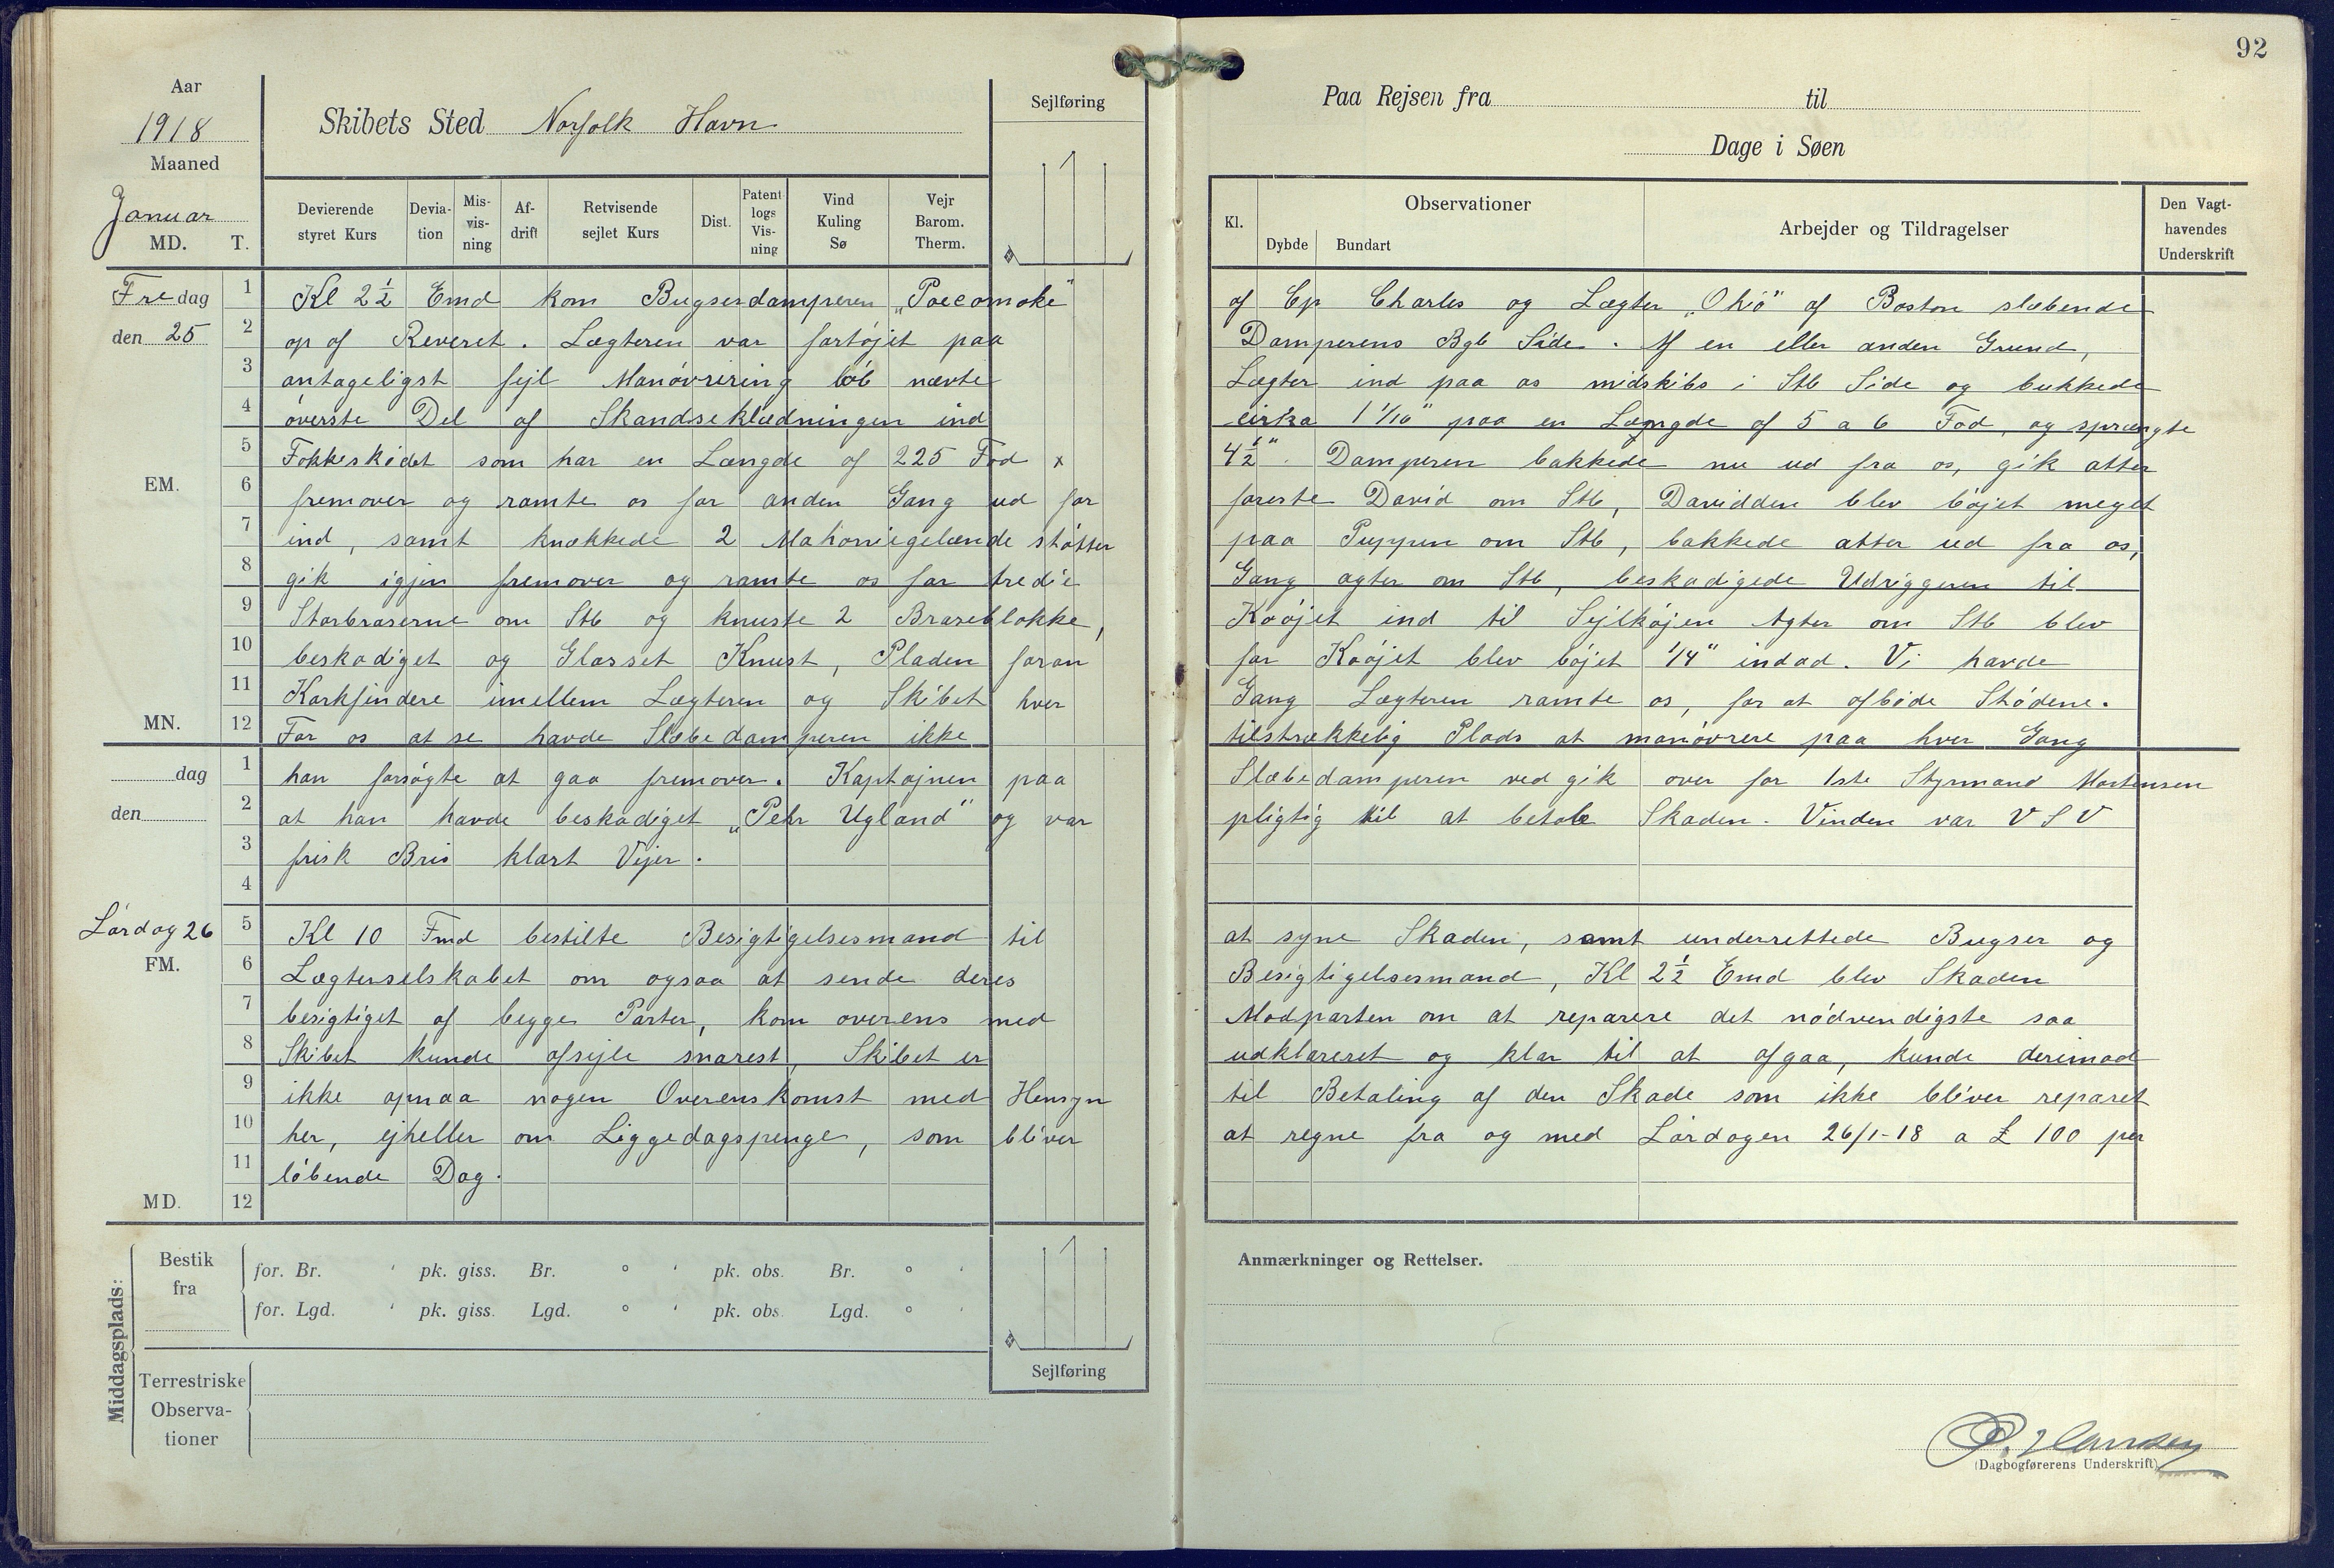 92
Aar
1918
Maaned
Januar
MD. T.
Skibets Sted Norfolk Havn
Sejlføring
Paa Rejsen fra til
Dage i Søen
Devierende styret Kurs
Deviation
Misvisning
Afdrift
Retvisende sejlet Kurs
Dist.
Patent logs Visning
Vind Kuling Sø
Vejr Barom. Therm.
Kl.
Observationer
Dybde Bundart
Arbejder og Tildragelser
Den Vagthavendes Underskrift
Fredag
den 25
EM.
MN.
1 Kl 2½ Emd kom Bugserdamperen „Pocomoke" of Cp Charles og Lægter „Ohio" af Boston slæbende
2 op af Reveret. Lægteren var fortøjet paa Damperens Bgb Side. Af en eller anden Grund,
3 antageligst fejl Manövrering løb nævte Lægter ind paa os midskibs i Stb Side og bukkede
4 överste Del af Skandseklædningen ind cirka 1 1/16" paa en Længde af 5 a 6 Fod, og sprængte
5 Fokkeskødet som har en Længde af 225 Fod x 4½". Damperen bakkede nu ud fra os, gik atter
6 fremover og ramte os for anden Gang ud for foreste David om Stb, Davidden blev bøjet meget
7 ind, samt knækkede 2 Mahonnigelænde støtter paa Puppen om Stb, bakkede atter ud fra os,
8 gik igjen fremover og ramte os for tredie Gang agter om Stb, beskadigede Udriggeren til
9 Storbraserne om Stb og knuste 2 Braseblokke, Koöjet ind til Sejlköjen Agter om Stb blev
10 beskadiget og Glasset Knust, Pladen foran for Koöjet blev böjet 1/4" indad. Vi havde
11 Korkfendere imellem Lægteren og Skibet hver Gang Lægteren ramte os, for at afböde Stödene.
12 For os at se havde Slæbedamperen ikke tilstrækkelig Plads at manövrere paa hver Gang
dag
den
1 han forsögte at gaa fremover. Kaptajnen paa Slæbedamperen ved gik over for 1ste Styrmand Mortensen
2 at han havde beskadiget „Pehr Ugland" og var pligtig til at betale Skaden. Vinden var V S V
3 frisk Bris klart Vejer.
4
Lördag 26
FM.
MD.
5 Kl 10 Fmd bestilte Besigtigelsesmand til at syne Skaden, samt underrettede Bugser og
6 Lægterselskabet om ogsaa at sende deres Besigtigelsesmand, Kl 2½ Emd blev Skaden
7 besigtiget af begge Parter, kom overens med Modparten om at reparere det nödvendigste saa
8 Skibet kunde afsejle snarest, Skibet er udklareret og klar til at afgaa, kunde derimod
9 ikke opnaa nogen Overenskomst med Hensyn til Betaling af den Skade som ikke bliver reparet
10 her, ejheller om Liggedagspenge, som bliver at regne fra og med Lördagen 26/1-18 a £ 100 per
11 löbende Dag.
12
Middagsplads:
Bestik fra
for. Br. ' pk. giss. Br. ° ' pk. obs. Br. ° '
for. Lgd. ' pk. giss. Lgd. ° ' pk. obs. Lgd. ° '
Terrestriske Observationer
Sejlføring
Anmærkninger og Rettelser.
P. Hansen
(Dagbogførerens Underskrift)